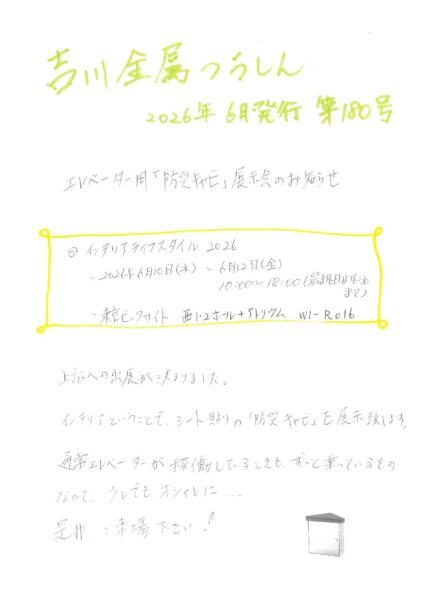 吉川金属つうしん
2026年 6月発行 第180号
エレベーター用「防災キャビ」展示会のお知らせ
◎ インテリアライフスタイル 2026
・2026年6月10日(水) ～ 6月12日(金)
10:00～18:00 (最終日は16:30
まで)
・東京ビッグサイト 西1・2ホール+アトリウム W1-R016
上記への出展が決まりました。
インテリアということで、シート貼りの「防災キャビ」を展示致します。
通常エレベーターが稼働しているときも、ずっと乗っているもの
なので、少しでもオシャレに...
是非、ご来場下さい!